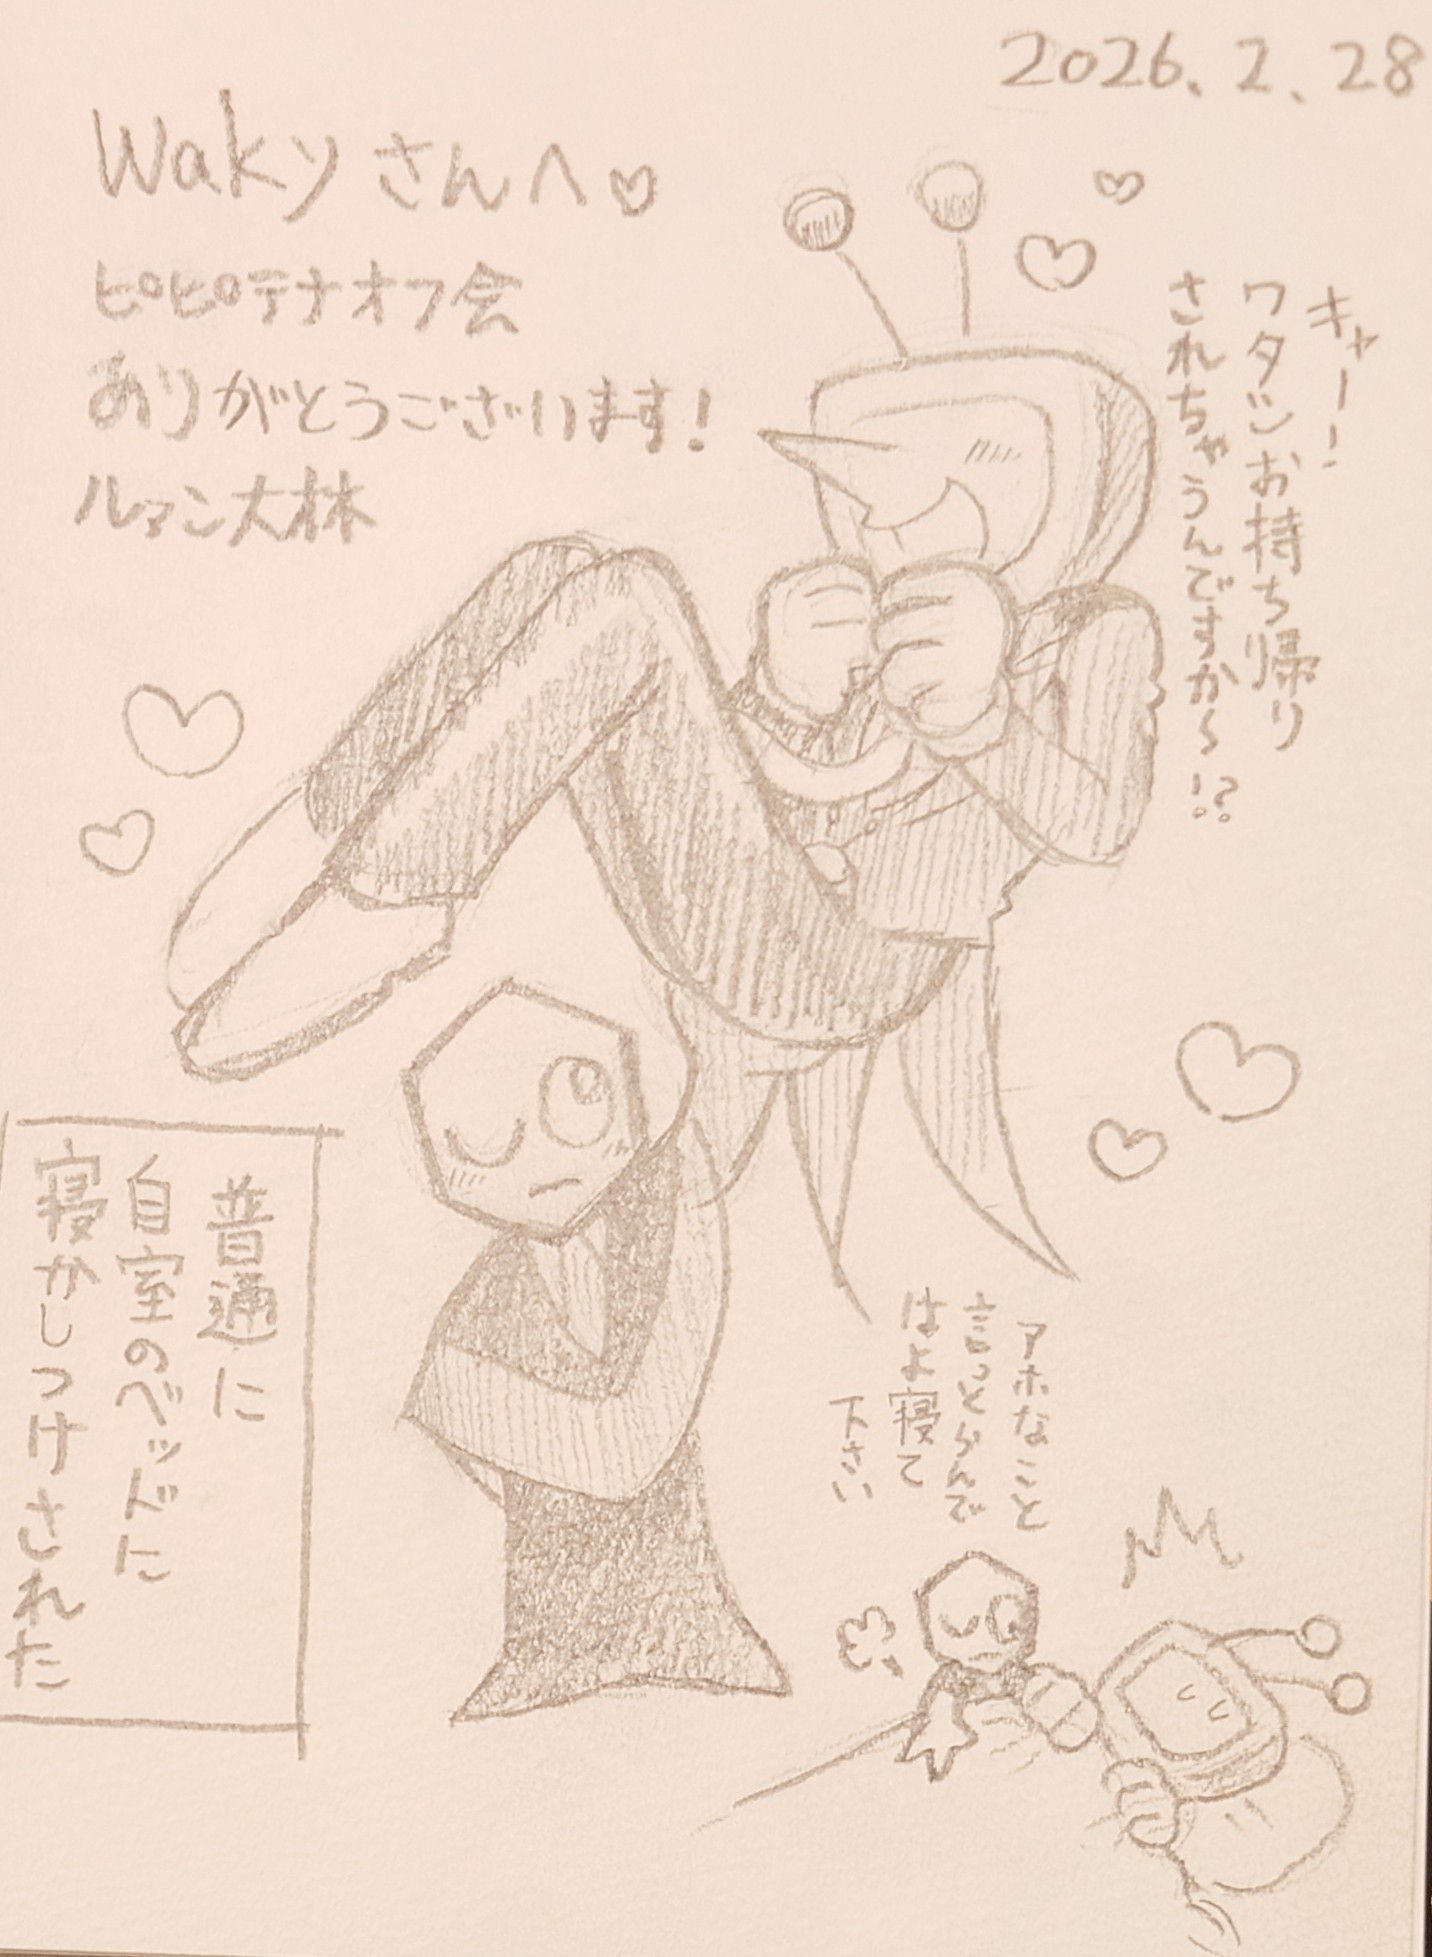 2026.2.28
Wakyさんへ♡
ピピテナオフ会
ありがとうございます!
ルマン大林
キャー!
ワタシお持ち帰り
されちゃうんですか~!?
普通に
自室のベッドに
寝かしつけされた
アホなこと
言っとらんで
はよ寝て
下さい